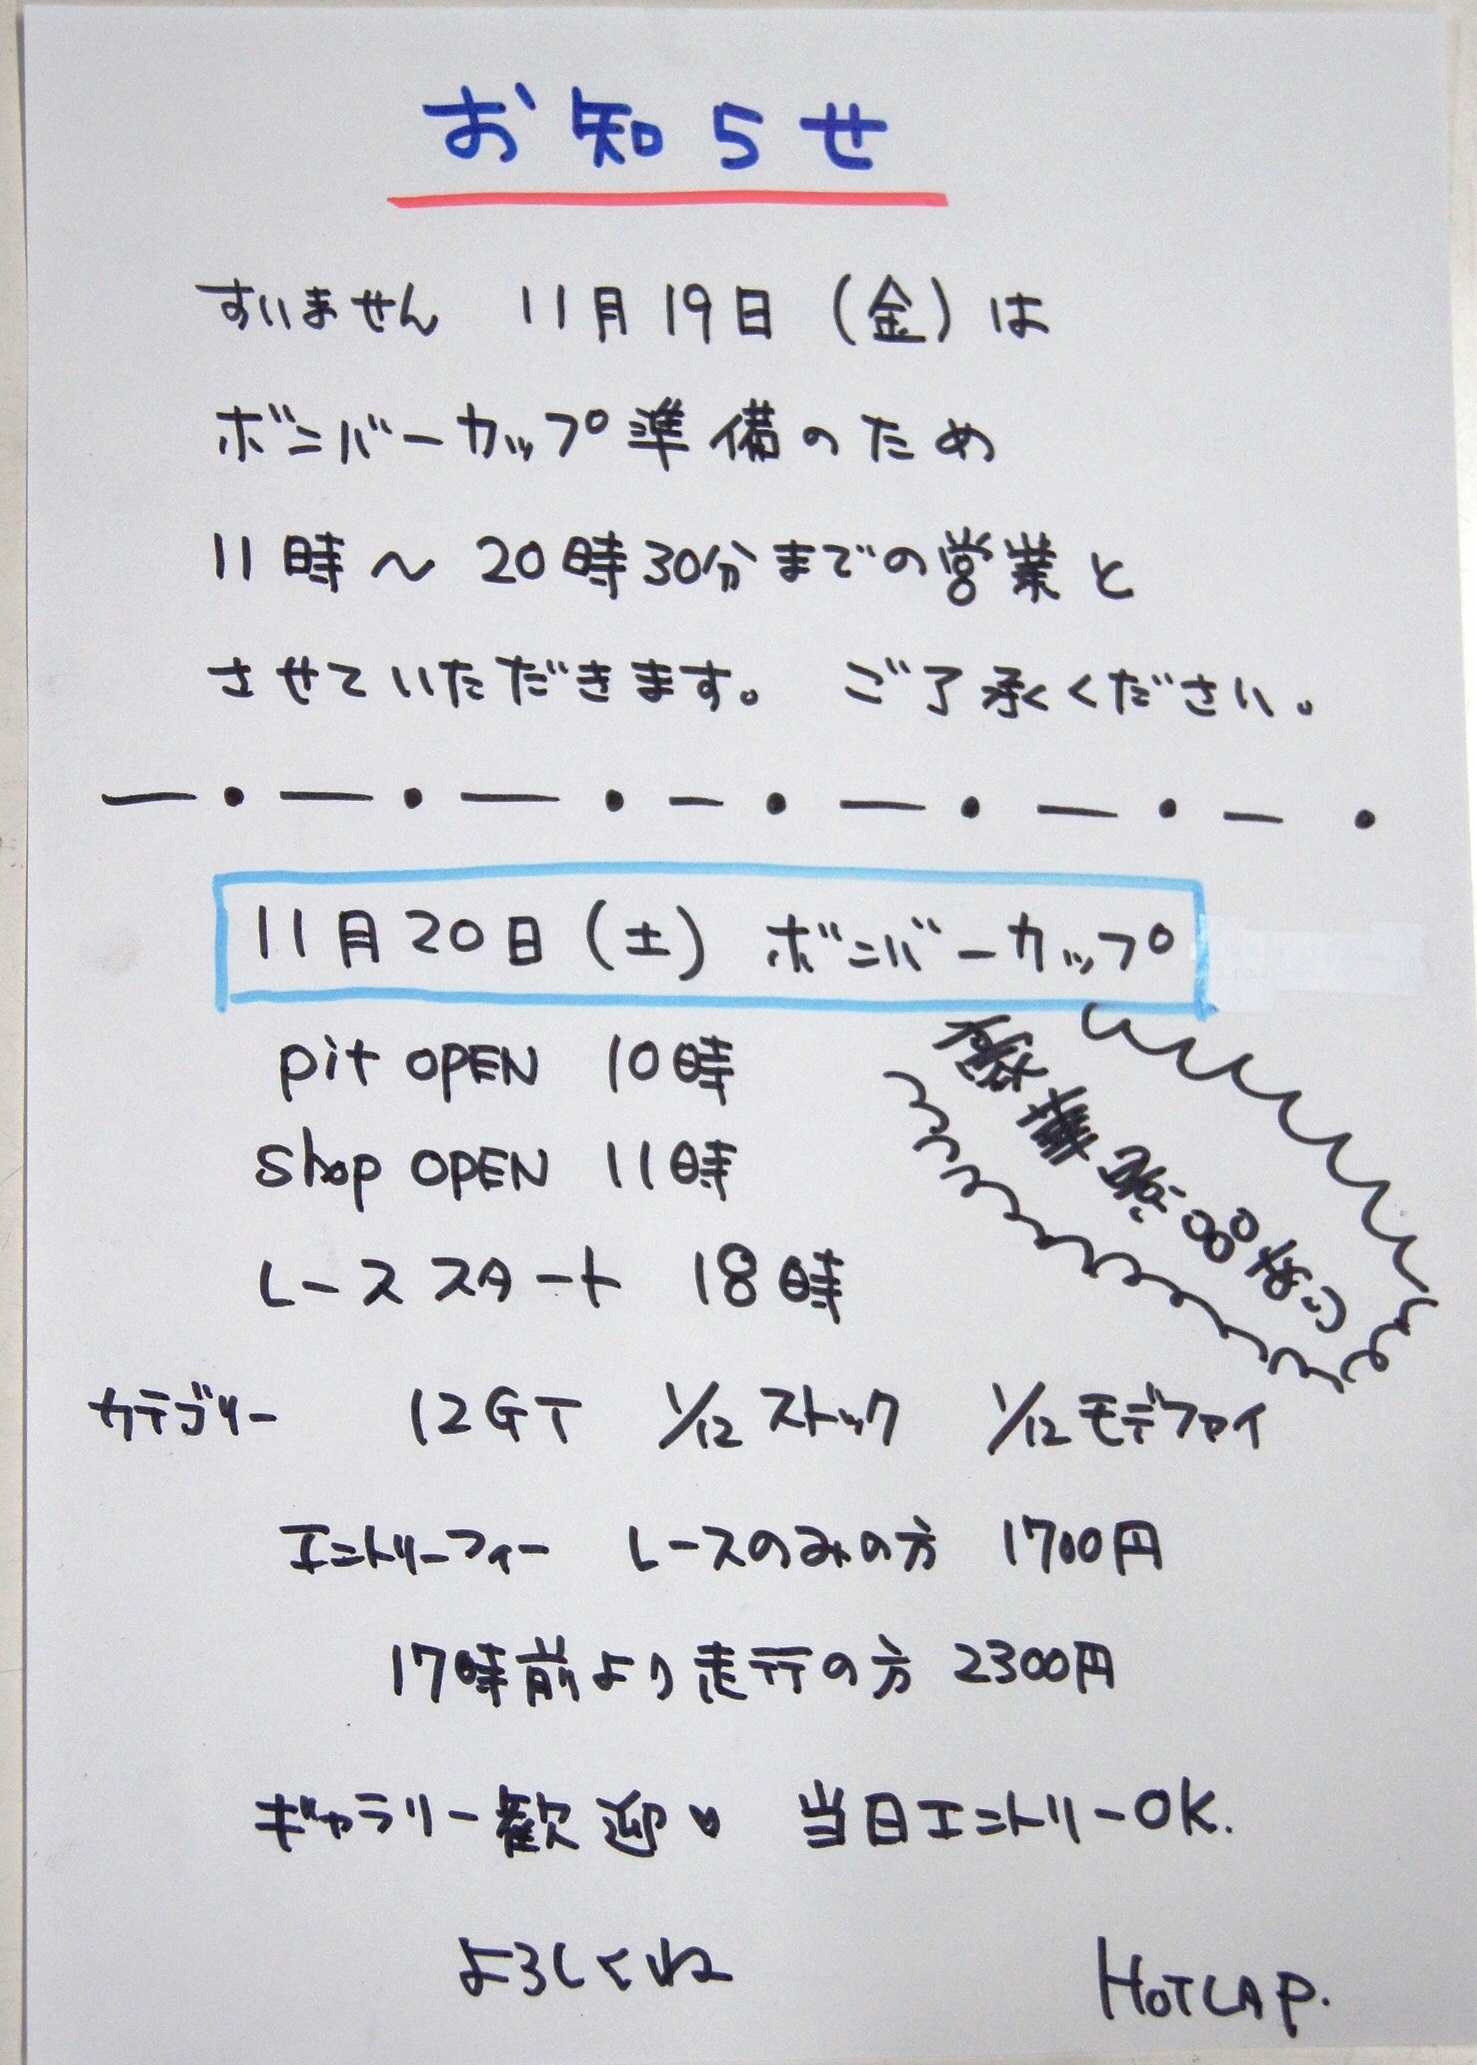 お知らせ
すいません 11月19日(金)は
ボンバーカップ準備のため
11時～20時30分までの営業と
させていただきます。 ご了承ください。
11月20日(土) ボンバーカップ
pit OPEN 10時
豪華景品有り
shop OPEN 11時
レーススタート 18時
カテゴリー 12GT 1/12ストック 1/12モデファイ
エントリーフィー レースのみの方 1700円
17時前より走行の方 2300円
ギャラリー歓迎♥ 当日エントリーOK.
よろしくね HOTLAP.